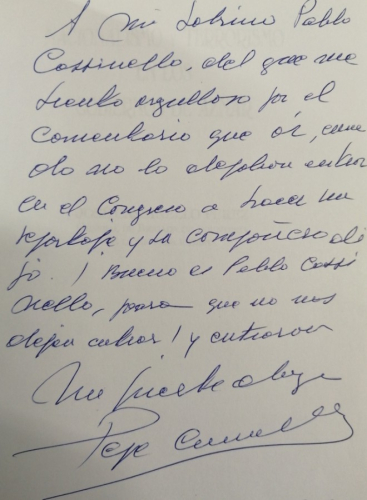 A mi Sobrino Pablo
Cassinello, del que me
siento orgulloso por el
Comentario que oí, cuan
do no lo dejaban entrar
en el Congreso a hacer un
reportaje y su compañero di
jo. ¡Bueno es Pablo Cassi
nello, para que no nos
dejen entrar! y entraron
Un fuerte abrazo
Pepe